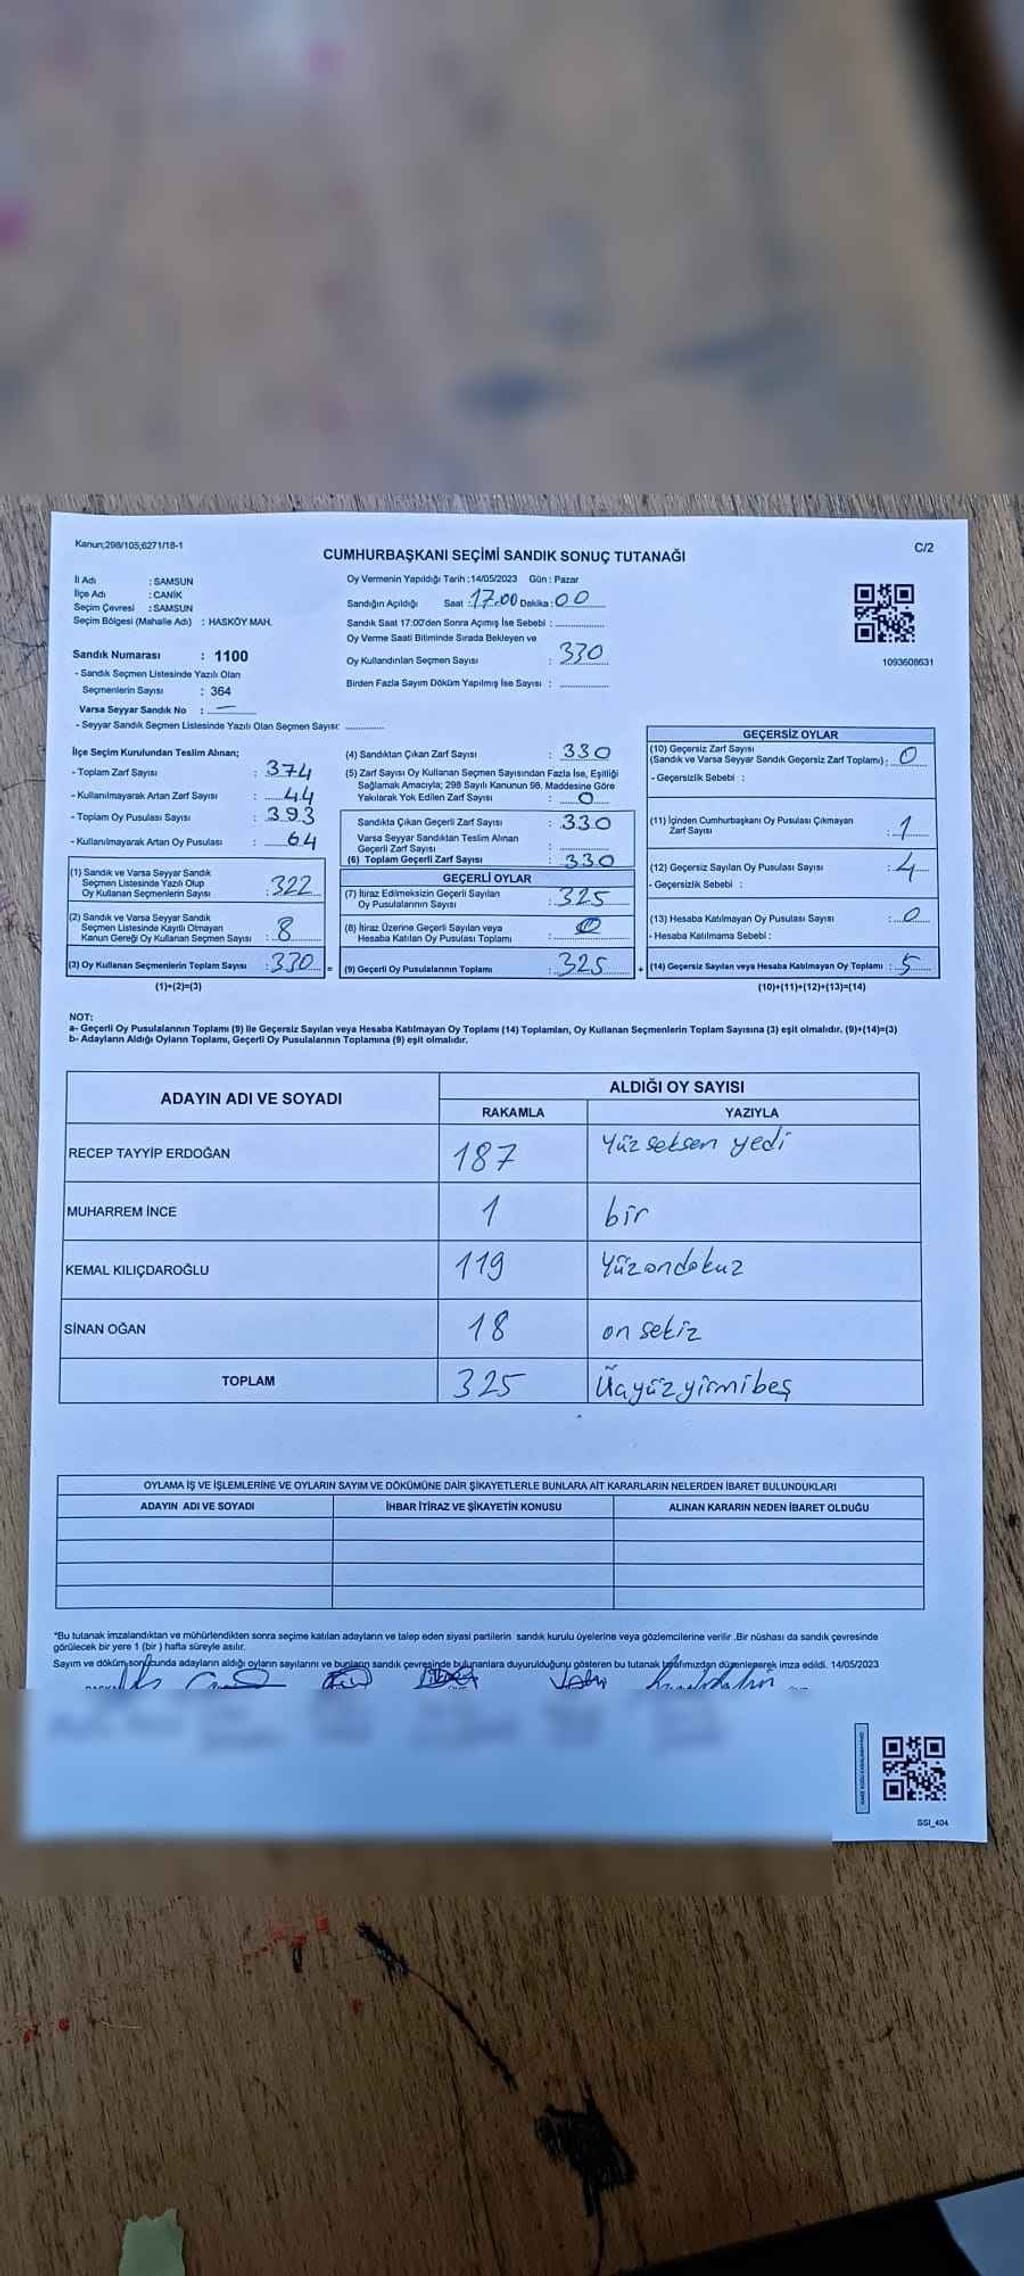 Kanun;298/105;6271/18-1
C/2
CUMHURBAŞKANI SEÇİMİ SANDIK SONUÇ TUTANAĞI
İl Adı : SAMSUN
İlçe Adı : CANİK
Seçim Çevresi : SAMSUN
Seçim Bölgesi (Mahalle Adı) : HASKÖY MAH.
Sandık Numarası : 1100
- Sandık Seçmen Listesinde Yazılı Olan
Seçmenlerin Sayısı : 364
Varsa Seyyar Sandık No : —
- Seyyar Sandık Seçmen Listesinde Yazılı Olan Seçmen Sayısı: ............
Oy Vermenin Yapıldığı Tarih :14/05/2023 Gün : Pazar
Sandığın Açıldığı Saat :17.00 Dakika : 00
Sandık Saat 17:00'den Sonra Açımış İse Sebebi : ...............
Oy Verme Saati Bitiminde Sırada Bekleyen ve
Oy Kullandırılan Seçmen Sayısı : 330
Birden Fazla Sayım Döküm Yapılmış İse Sayısı : ...............
1093608631
İlçe Seçim Kurulundan Teslim Alınan;
- Toplam Zarf Sayısı : 374
- Kullanılmayarak Artan Zarf Sayısı : 44
- Toplam Oy Pusulası Sayısı : 393
- Kullanılmayarak Artan Oy Pusulası : 64
(1) Sandık ve Varsa Seyyar Sandık
Seçmen Listesinde Yazılı Olup
Oy Kullanan Seçmenlerin Sayısı : 322
(2) Sandık ve Varsa Seyyar Sandık
Seçmen Listesinde Kayıtlı Olmayan
Kanun Gereği Oy Kullanan Seçmen Sayısı : 8
(3) Oy Kullanan Seçmenlerin Toplam Sayısı : 330 =
(1)+(2)=(3)
(4) Sandıktan Çıkan Zarf Sayısı : 330
(5) Zarf Sayısı Oy Kullanan Seçmen Sayısından Fazla İse, Eşitliği
Sağlamak Amacıyla; 298 Sayılı Kanunun 98. Maddesine Göre
Yakılarak Yok Edilen Zarf Sayısı : 0
Sandıkta Çıkan Geçerli Zarf Sayısı : 330
Varsa Seyyar Sandıktan Teslim Alınan
Geçerli Zarf Sayısı : ............
(6) Toplam Geçerli Zarf Sayısı : 330
GEÇERLİ OYLAR
(7) İtiraz Edilmeksizin Geçerli Sayılan
Oy Pusulalarının Sayısı : 325
(8) İtiraz Üzerine Geçerli Sayılan veya
Hesaba Katılan Oy Pusulası Toplamı : 0
(9) Geçerli Oy Pusulalarının Toplamı : 325 +
GEÇERSİZ OYLAR
(10) Geçersiz Zarf Sayısı
(Sandık ve Varsa Seyyar Sandık Geçersiz Zarf Toplamı) : 0
- Geçersizlik Sebebi :
(11) İçinden Cumhurbaşkanı Oy Pusulası Çıkmayan
Zarf Sayısı : 1
(12) Geçersiz Sayılan Oy Pusulası Sayısı : 4
- Geçersizlik Sebebi :
(13) Hesaba Katılmayan Oy Pusulası Sayısı : 0
- Hesaba Katılmama Sebebi :
(14) Geçersiz Sayılan veya Hesaba Katılmayan Oy Toplamı : 5
(10)+(11)+(12)+(13)=(14)
NOT:
a- Geçerli Oy Pusulalarının Toplamı (9) ile Geçersiz Sayılan veya Hesaba Katılmayan Oy Toplamı (14) Toplamları, Oy Kullanan Seçmenlerin Toplam Sayısına (3) eşit olmalıdır. (9)+(14)=(3)
b- Adayların Aldığı Oyların Toplamı, Geçerli Oy Pusulalarının Toplamına (9) eşit olmalıdır.
ADAYIN ADI VE SOYADI
ALDIĞI OY SAYISI
RAKAMLA YAZIYLA
RECEP TAYYİP ERDOĞAN 187 Yüz seksen yedi
MUHARREM İNCE 1 bir
KEMAL KILIÇDAROĞLU 119 Yüzondokuz
SİNAN OĞAN 18 on sekiz
TOPLAM 325 Üçyüzyirmibeş
OYLAMA İŞ VE İŞLEMLERİNE VE OYLARIN SAYIM VE DÖKÜMÜNE DAİR ŞİKAYETLERLE BUNLARA AİT KARARLARIN NELERDEN İBARET BULUNDUKLARI
ADAYIN ADI VE SOYADI İHBAR İTİRAZ VE ŞİKAYETİN KONUSU ALINAN KARARIN NEDEN İBARET OLDUĞU
*Bu tutanak imzalandıktan ve mühürlendikten sonra seçime katılan adayların ve talep eden siyasi partilerin sandık kurulu üyelerine veya gözlemcilerine verilir .Bir nüshası da sandık çevresinde
görülecek bir yere 1 (bir ) hafta süreyle asılır.
Sayım ve döküm sonucunda adayların aldığı oyların sayılarını ve bunların sandık çevresinde bulunanlara duyurulduğunu gösteren bu tutanak tarafımızdan düzenlenerek imza edildi. 14/05/2023
SSI_404